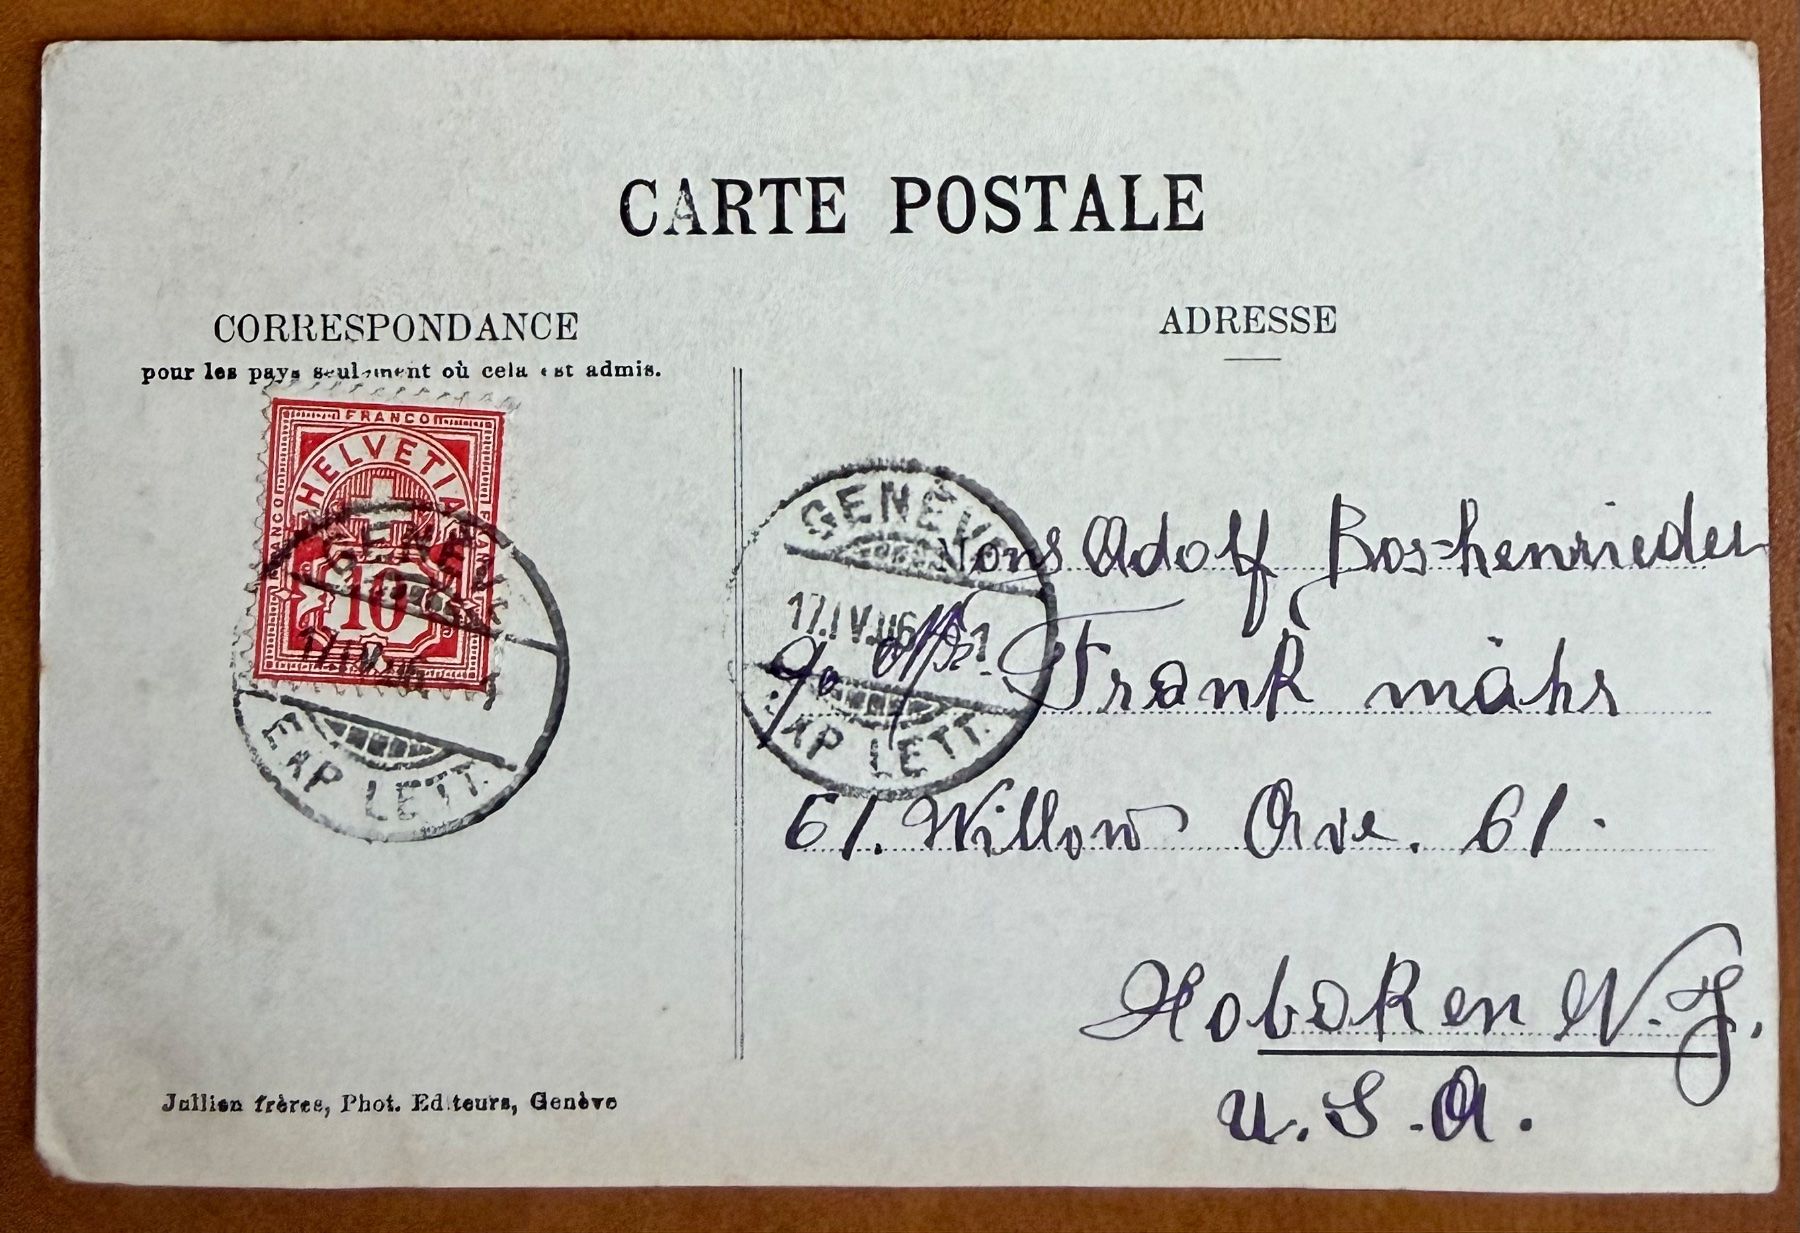 CARTE POSTALE
CORRESPONDANCE
pour les pays seulement où cela est admis.
ADRESSE
FRANCO
HELVETIA
FRANCO
FRANCO
10
GENÈVE
17.IV.06
EXP. LETT.
GENÈVE
17.IV.06 1
EXP. LETT.
Mons Adolf
Frank Mähr
61. Willow Ave. 61.
Hoboken N.J.
U.S.A.
Jullien frères, Phot. Editeurs, Genève